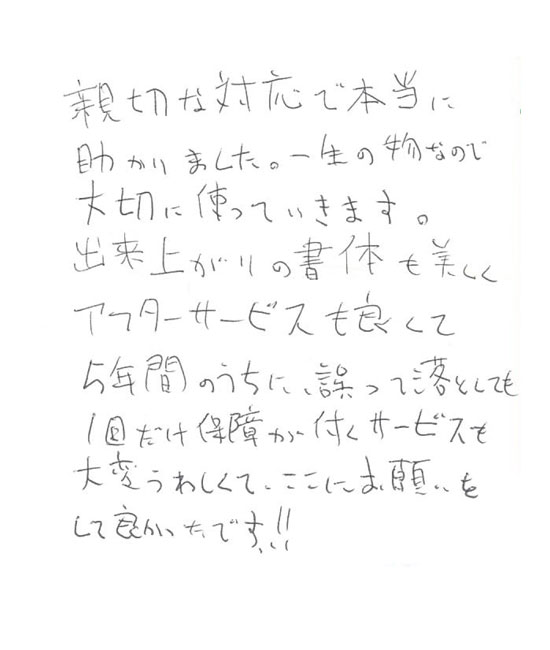 親切な対応で本当に
助かりました。一生の物なので
大切に使っていきます。
出来上がりの書体も美しく
アフターサービスも良くて
5年間のうちに、誤って落としても
1回だけ保障が付くサービスも
大変うれしくて、ここにお願いを
して良かったです!!